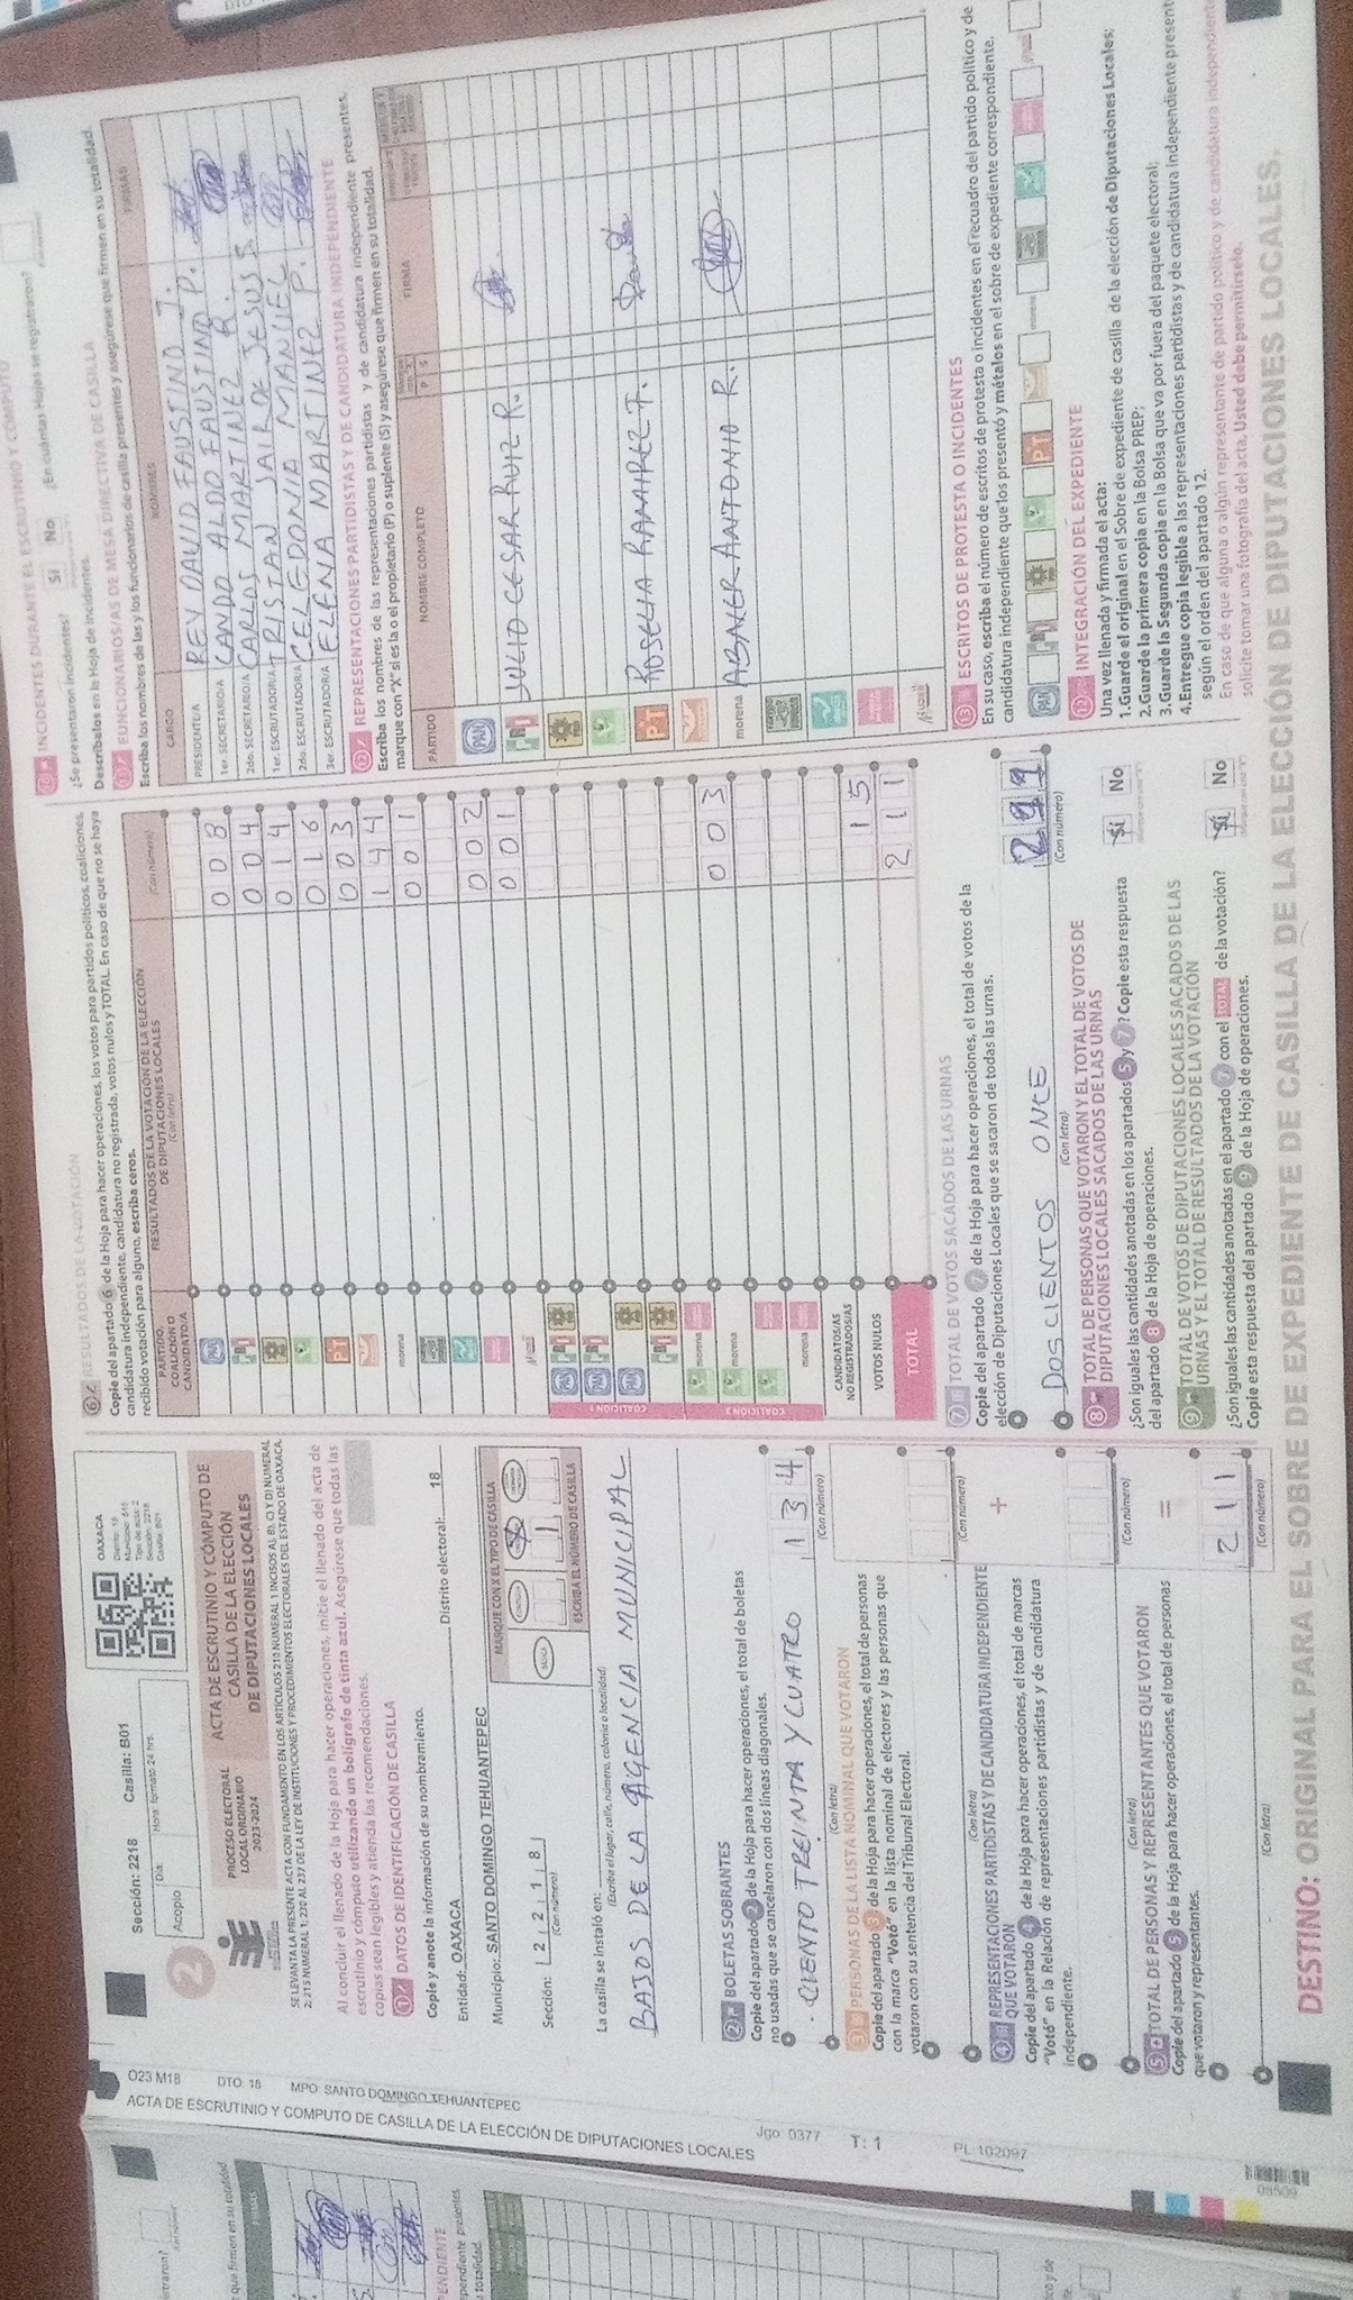 Sección: 2218 Casilla: B01
Acopio
Día
Hora: formato 24 hrs.
OAXACA
2
PROCESO ELECTORAL
LOCAL ORDINARIO
2023-2024
ACTA DE ESCRUTINIO Y CÓMPUTO DE
CASILLA DE LA ELECCIÓN
DE DIPUTACIONES LOCALES
SE LEVANTA LA PRESENTE ACTA CON FUNDAMENTO EN LOS ARTÍCULOS 210 NUMERAL 1 INCISOS A), B), C) Y D) NUMERAL
2; 215 NUMERAL 1; 230 AL 237 DE LA LEY DE INSTITUCIONES Y PROCEDIMIENTOS ELECTORALES DEL ESTADO DE OAXACA.
Al concluir el llenado de la Hoja para hacer operaciones, inicie el llenado del acta de
escrutinio y cómputo utilizando un bolígrafo de tinta azul. Asegúrese que todas las
copias sean legibles y atienda las recomendaciones.
1 DATOS DE IDENTIFICACIÓN DE CASILLA
Copie y anote la información de su nombramiento.
Entidad: OAXACA Distrito electoral: 18
Municipio: SANTO DOMINGO TEHUANTEPEC
Sección: 2 2 1 8
(Con número)
MARQUE CON X EL TIPO DE CASILLA
1
ESCRIBA EL NÚMERO DE CASILLA
La casilla se instaló en:
(Escriba el lugar, calle, número, colonia o localidad)
BAJOS DE LA AGENCIA MUNICIPAL
2 BOLETAS SOBRANTES
Copie del apartado 2 de la Hoja para hacer operaciones, el total de boletas
no usadas que se cancelaron con dos líneas diagonales.
CIENTO TREINTA Y CUATRO 1 3 4
(Con letra) (Con número)
3 PERSONAS DE LA LISTA NOMINAL QUE VOTARON
Copie del apartado 3 de la Hoja para hacer operaciones, el total de personas
con la marca "Votó" en la lista nominal de electores y las personas que
votaron con su sentencia del Tribunal Electoral.
(Con letra) (Con número)
4 REPRESENTACIONES PARTIDISTAS Y DE CANDIDATURA INDEPENDIENTE
QUE VOTARON
+
Copie del apartado 4 de la Hoja para hacer operaciones, el total de marcas
"Votó" en la Relación de representaciones partidistas y de candidatura
independiente.
(Con letra) (Con número)
5 TOTAL DE PERSONAS Y REPRESENTANTES QUE VOTARON
=
Copie del apartado 5 de la Hoja para hacer operaciones, el total de personas
que votaron y representantes.
2 1 1
(Con letra) (Con número)
6 RESULTADOS DE LA VOTACIÓN
Copie del apartado 6 de la Hoja para hacer operaciones, los votos para partidos políticos, coaliciones,
candidatura independiente, candidatura no registrada, votos nulos y TOTAL. En caso de que no se haya
recibido votación para alguno, escriba ceros.
PARTIDO,
COALICIÓN O
CANDIDATO/A
RESULTADOS DE LA VOTACIÓN DE LA ELECCIÓN
DE DIPUTACIONES LOCALES
(Con letra)
(Con número)
PAN 0 0 8
PRI 0 0 4
0 1 4
0 1 6
PT 0 0 3
1 4 4
morena 0 0 1
0 0 2
0 0 1
COALICIÓN 1
COALICIÓN 2
morena 0 0 3
morena
morena
CANDIDATOS/AS
NO REGISTRADOS/AS
VOTOS NULOS 1 5
TOTAL 2 1 1
7 TOTAL DE VOTOS SACADOS DE LAS URNAS
Copie del apartado 7 de la Hoja para hacer operaciones, el total de votos de la
elección de Diputaciones Locales que se sacaron de todas las urnas.
DOSCIENTOS ONCE
(Con letra) (Con número)
8 TOTAL DE PERSONAS QUE VOTARON Y EL TOTAL DE VOTOS DE
DIPUTACIONES LOCALES SACADOS DE LAS URNAS
¿Son iguales las cantidades anotadas en los apartados 5 y 7? Copie esta respuesta
del apartado 8 de la Hoja de operaciones.
Sí No
9 TOTAL DE VOTOS DE DIPUTACIONES LOCALES SACADOS DE LAS
URNAS Y EL TOTAL DE RESULTADOS DE LA VOTACIÓN
¿Son iguales las cantidades anotadas en el apartado 7 con el TOTAL de la votación?
Copie esta respuesta del apartado 9 de la Hoja de operaciones.
Sí No
INCIDENTES DURANTE EL ESCRUTINIO Y CÓMPUTO
¿Se presentaron incidentes? Sí No ¿En cuántas Hojas se registraron?
Descríbalos en la Hoja de incidentes.
FUNCIONARIOS/AS DE MESA DIRECTIVA DE CASILLA
Escriba los nombres de las y los funcionarios de casilla presentes y asegúrese que firmen en su totalidad.
CARGO NOMBRES FIRMAS
PRESIDENTE/A REY DAVID FAUSTINO J.
1er. SECRETARIO/A CANDO ALDO FAUSTINO P.
2do. SECRETARIO/A CARLOS MARTINEZ R.
1er. ESCRUTADOR/A TRISTAN JAIR DE JESUS S
2do. ESCRUTADOR/A CELEDONIA MANUEL
3er. ESCRUTADOR/A ELENA MARTINEZ P.
REPRESENTACIONES PARTIDISTAS Y DE CANDIDATURA INDEPENDIENTE
Escriba los nombres de las representaciones partidistas y de candidatura independiente presentes,
marque con "X" si es la o el propietario (P) o suplente (S) y asegúrese que firmen en su totalidad.
PARTIDO NOMBRE COMPLETO P S FIRMA
PAN
PRI JULIO CESAR RUIZ R.
PT ROSELIA RAMIREZ T.
morena ABAKER ANTONIO R.
13 ESCRITOS DE PROTESTA O INCIDENTES
En su caso, escriba el número de escritos de protesta o incidentes en el recuadro del partido político y de
candidatura independiente que los presentó y métalos en el sobre de expediente correspondiente.
PAN PRI PT morena
INTEGRACIÓN DEL EXPEDIENTE
Una vez llenada y firmada el acta:
1.Guarde el original en el Sobre de expediente de casilla de la elección de Diputaciones Locales;
2.Guarde la primera copia en la Bolsa PREP;
3.Guarde la Segunda copia en la Bolsa que va por fuera del paquete electoral;
4.Entregue copia legible a las representaciones partidistas y de candidatura independiente present
según el orden del apartado 12.
En caso de que alguna o algún representante de partido político y de candidatura independient
solicite tomar una fotografía del acta, Usted debe permitírselo.
DESTINO: ORIGINAL PARA EL SOBRE DE EXPEDIENTE DE CASILLA DE LA ELECCIÓN DE DIPUTACIONES LOCALES.
O23 M18 DTO. 18 MPO: SANTO DOMINGO TEHUANTEPEC
ACTA DE ESCRUTINIO Y COMPUTO DE CASILLA DE LA ELECCIÓN DE DIPUTACIONES LOCALES
Jgo: 0377
T: 1
PL:102097
que firmen en su totalidad
PENDIENTE
pendiente presentes,
totalidad.